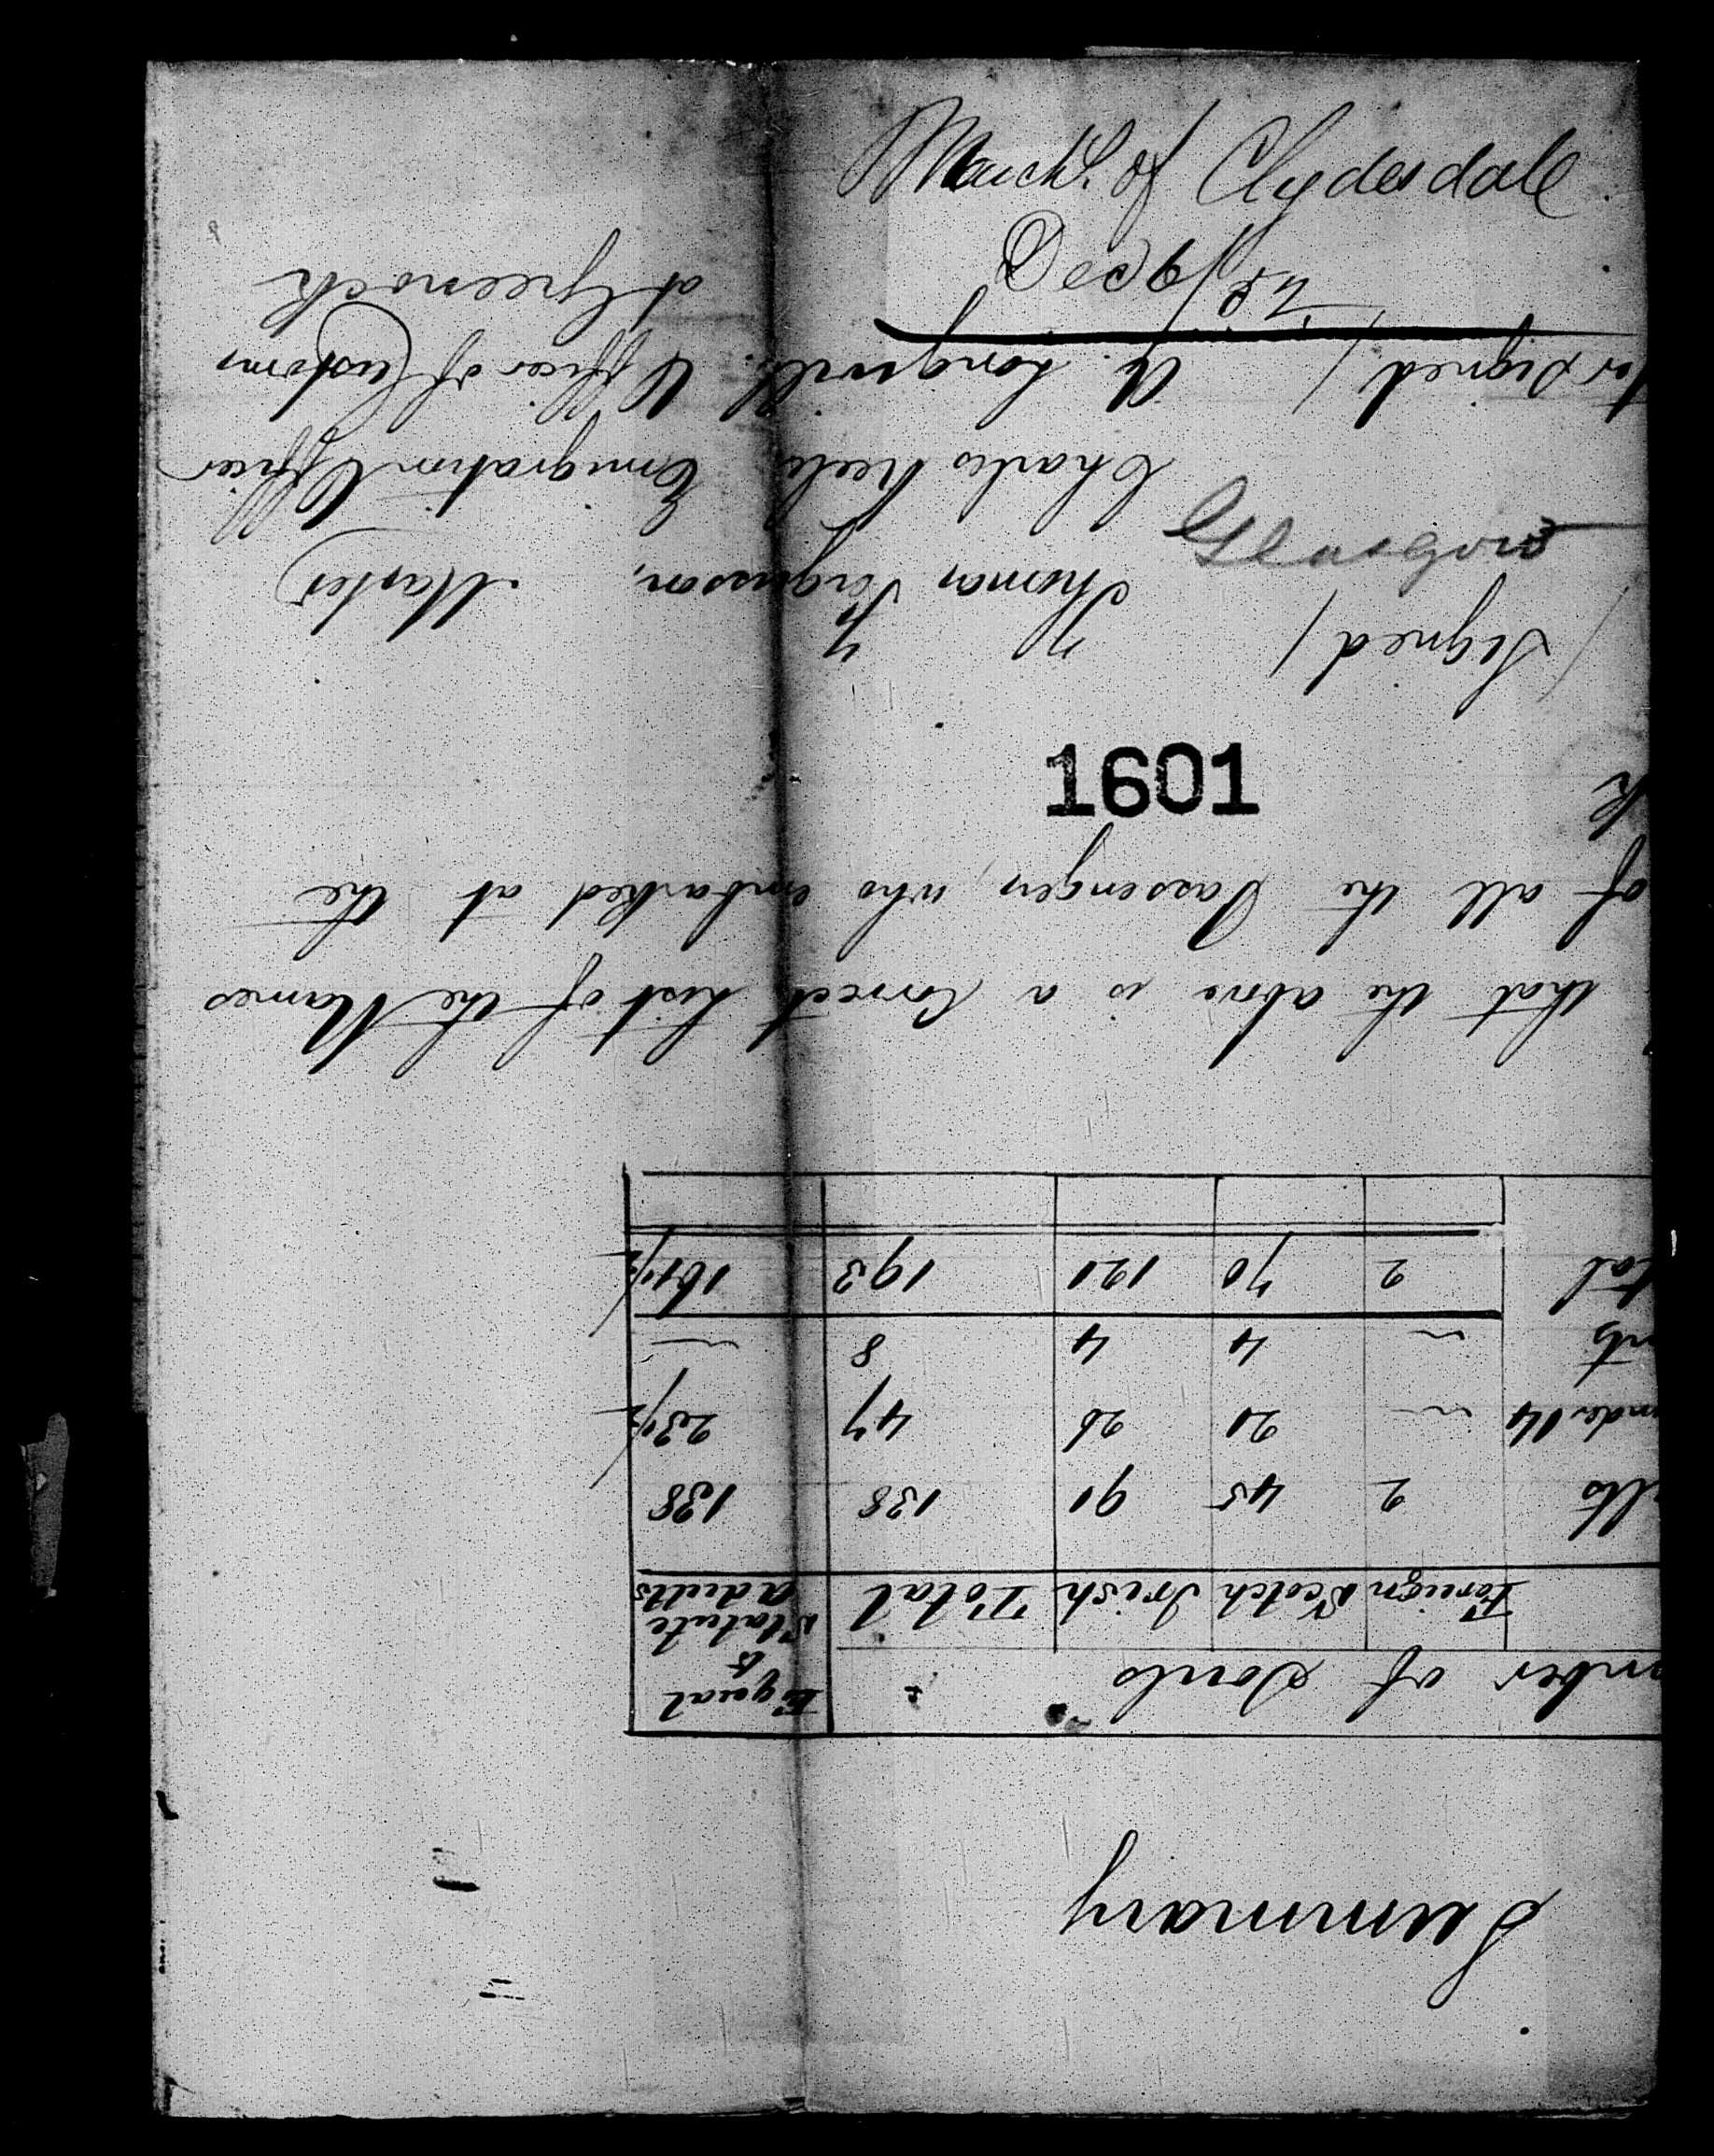 March. of Clydesdale
Dec 9/
Glasgow
1601
Summary
mber of Souls
Equal to Statute adults
Foreign Scotch Irish Total
lts 2 45 91 138 138
under 14 ~ 21 26 47 23 1/2
nts ~ 4 4 8 ~
tal 2 70 121 193 161 1/2
that the above is a Correct List of the Names
of all the Passengers who embarked at the
k
(Signed) Thomas Fergusson, Master
Charles Keele Emigration Officer
Signed) Officer of Customs
at Greenock